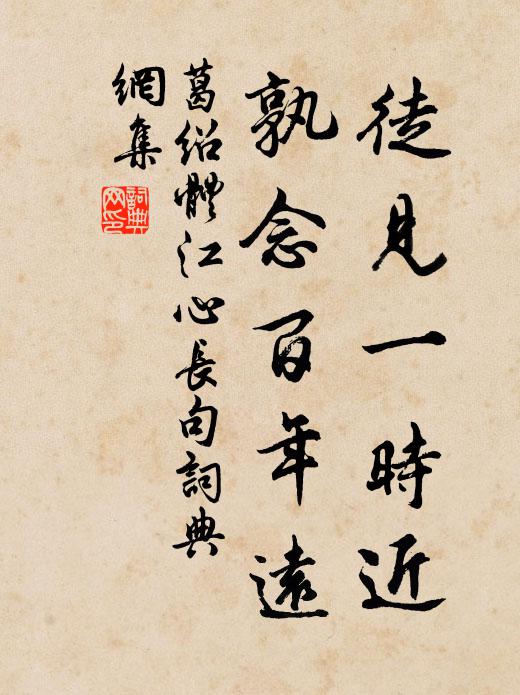 徒見一時近
孰念百年遠
葛紹體江心長句詞典
網集
詞典
网印